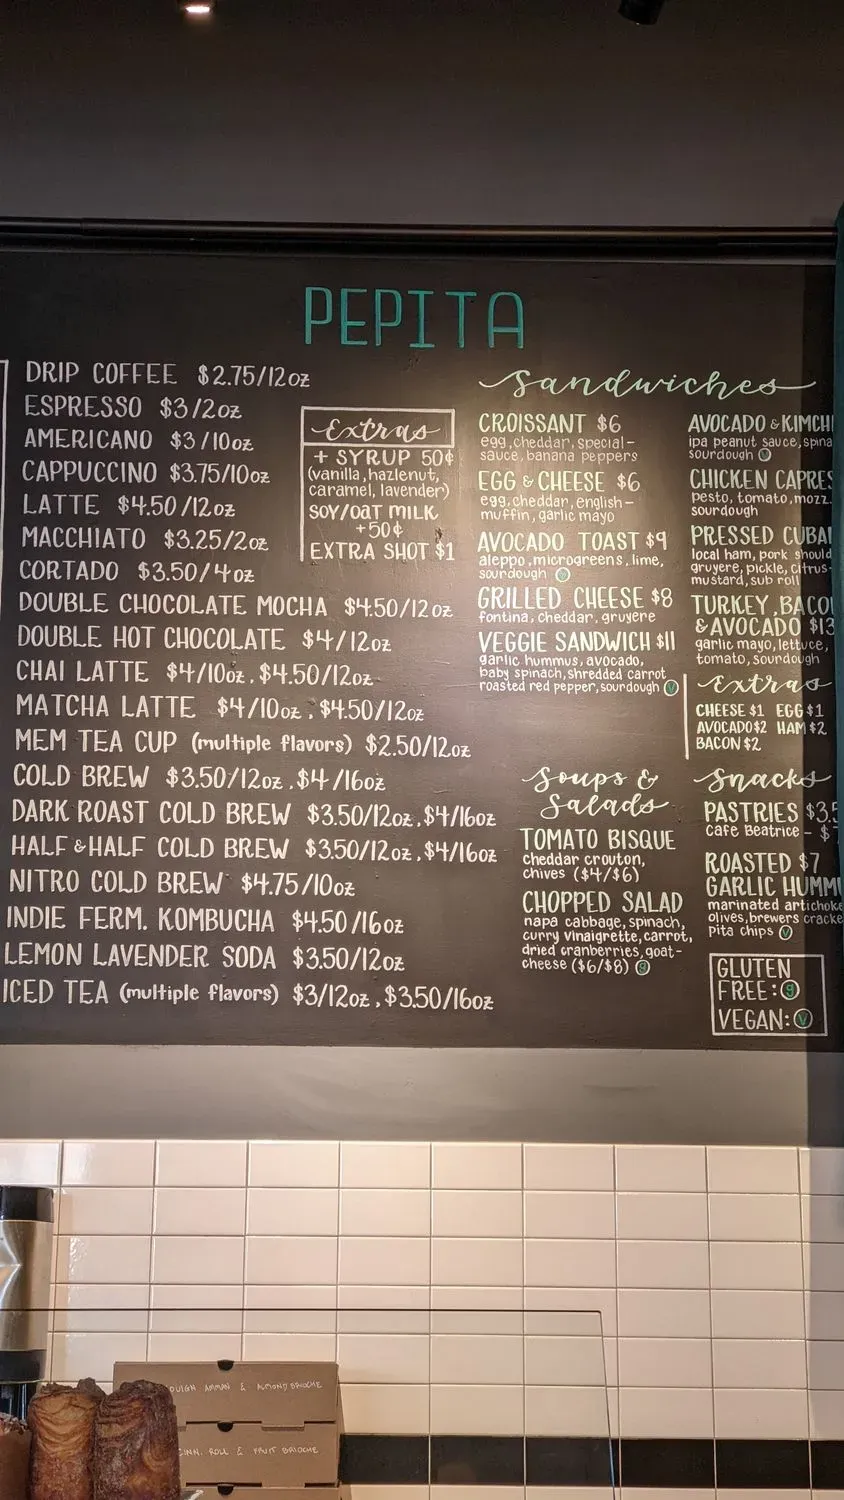 PEPITA
DRIP COFFEE $2.75/12oz
ESPRESSO $3/2oz
AMERICANO $3/10oz
CAPPUCCINO $3.75/10oz
LATTE $4.50/12oz
MACCHIATO $3.25/2oz
CORTADO $3.50/4oz
DOUBLE CHOCOLATE MOCHA $4.50/12oz
DOUBLE HOT CHOCOLATE $4/12oz
CHAI LATTE $4/10oz, $4.50/12oz
MATCHA LATTE $4/10oz, $4.50/12oz
MEM TEA CUP (multiple flavors) $2.50/12oz
COLD BREW $3.50/12oz, $4/16oz
DARK ROAST COLD BREW $3.50/12oz, $4/16oz
HALF & HALF COLD BREW $3.50/12oz, $4/16oz
NITRO COLD BREW $4.75/10oz
INDIE FERM. KOMBUCHA $4.50/16oz
LEMON LAVENDER SODA $3.50/12oz
ICED TEA (multiple flavors) $3/12oz, $3.50/16oz
Extras
+ SYRUP 50¢
(vanilla, hazlenut,
caramel, lavender)
SOY/OAT MILK
+50¢
EXTRA SHOT $1
Sandwiches
CROISSANT $6
egg, cheddar, special-
sauce, banana peppers
EGG & CHEESE $6
egg, cheddar, english-
muffin, garlic mayo
AVOCADO TOAST $9
aleppo, microgreens, lime,
sourdough V
GRILLED CHEESE $8
fontina, cheddar, gruyere
VEGGIE SANDWICH $11
garlic hummus, avocado,
baby spinach, shredded carrot
roasted red pepper, sourdough V
AVOCADO & KIMCHI
ipa peanut sauce,
sourdough V
CHICKEN
pesto, tomato, mozz.
sourdough
PRESSED
local ham, pork
gruyere, pickle, citrus-
mustard, sub roll
TURKEY,
& AVOCADO $13
garlic mayo, lettuce,
tomato, sourdough
Extras
CHEESE $1 EGG $1
AVOCADO $2 HAM $2
BACON $2
Soups &
Salads
TOMATO BISQUE
cheddar crouton,
chives ($4/$6)
CHOPPED SALAD
napa cabbage, spinach,
curry vinaigrette, carrot,
dried cranberries, goat-
cheese ($6/$8) g
Snacks
PASTRIES
Cafe Beatrice -
ROASTED $7
GARLIC
marinated
olives, brewers
pita chips V
GLUTEN
FREE: g
VEGAN: V
AMMAN & ALMOND BRIOCHE
CINN. ROLL & FRUIT BRIOCHE